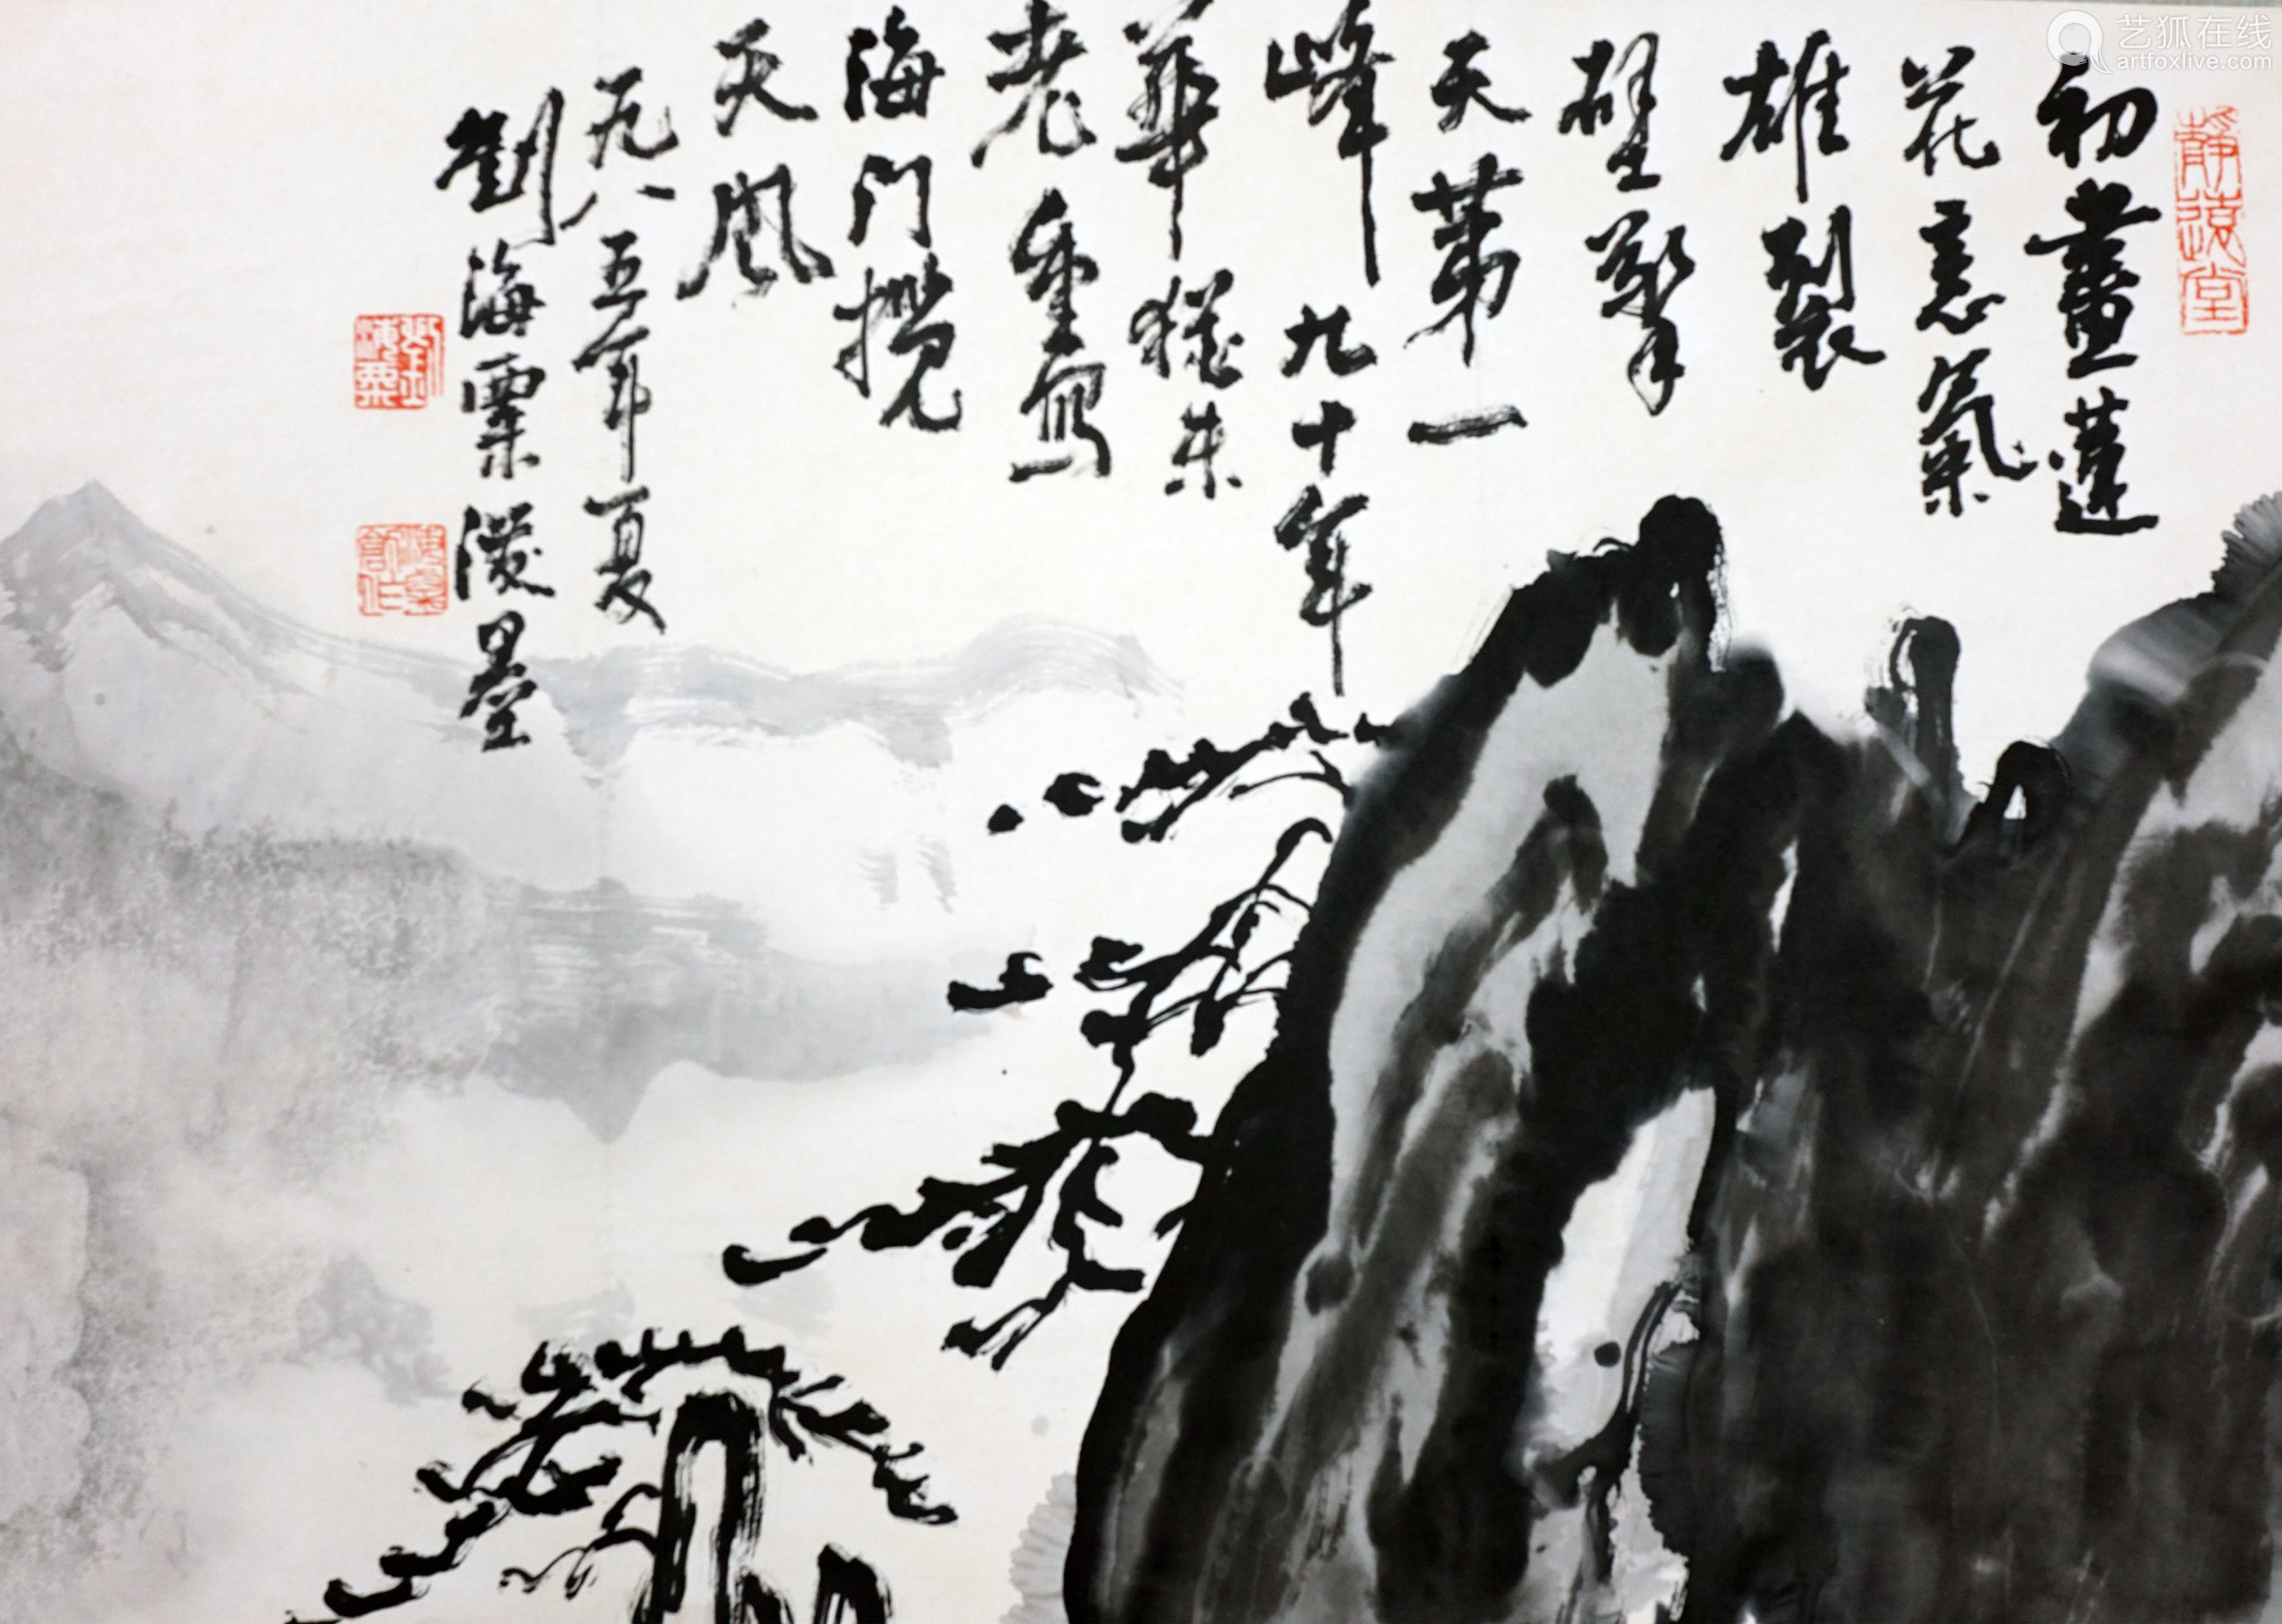 初畫蓮
花意氣
雄裂
壁擎
天第一
峰九十年
華猶未
老重寫
海門攬
天風
一九八五年夏
劉海粟潑墨
靜遠堂
劉海粟
艺狐在线
artfoxlive.com